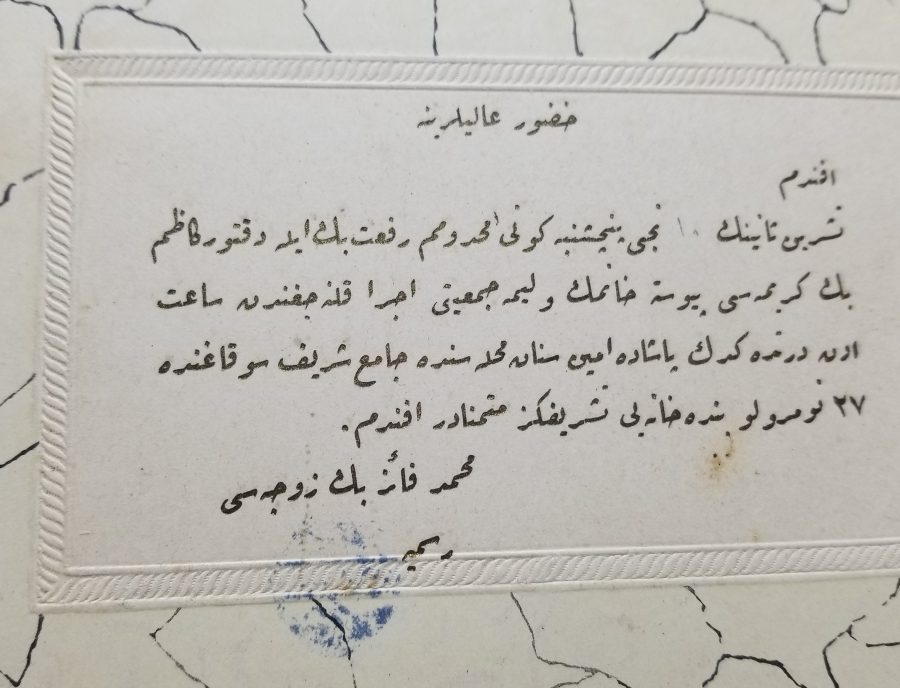 حضور عاليلرينه
افندم
تشرين ثانينك ١٠ نجى پنچشنبه كونى مخدومم رفعت بك ايله دقتور كاظم
بك كريمه سى پيوسته خانمك وليمه جمعيتى اجرا قلنه جغندن ساعت
اون درتده كدك پاشاده امين سنان محله سنده جامع شريف سوقاغنده
٢٧ نومرولو بنده خانه يى تشريفكز متمنادر افندم.
محمد فائز بك زوجه سى
رسميه